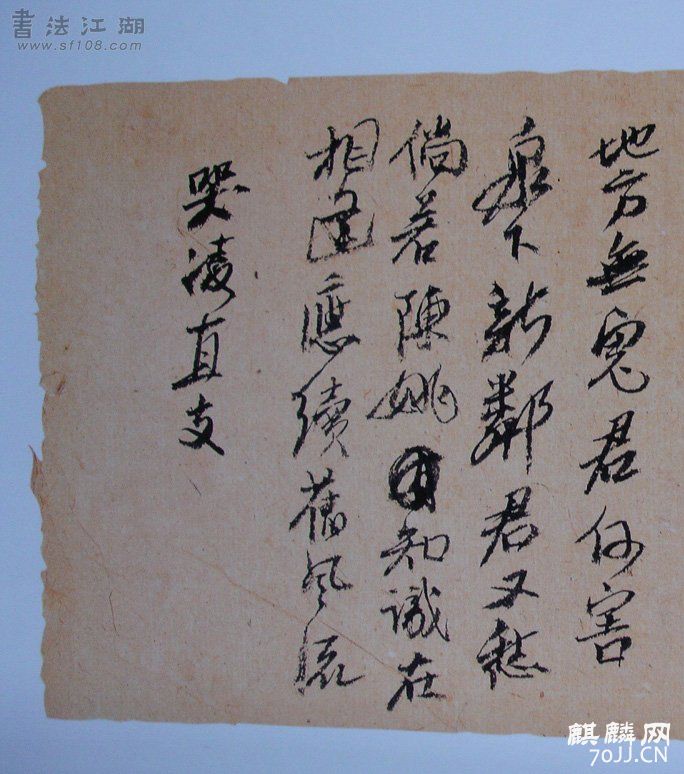 書法江湖
www.sf108.com
地方無鬼君何害
泉下新鄰君又愁
倘若陳姚知識在
相逢應續舊風流
哭凌直支
麒麟网
70JJ.CN